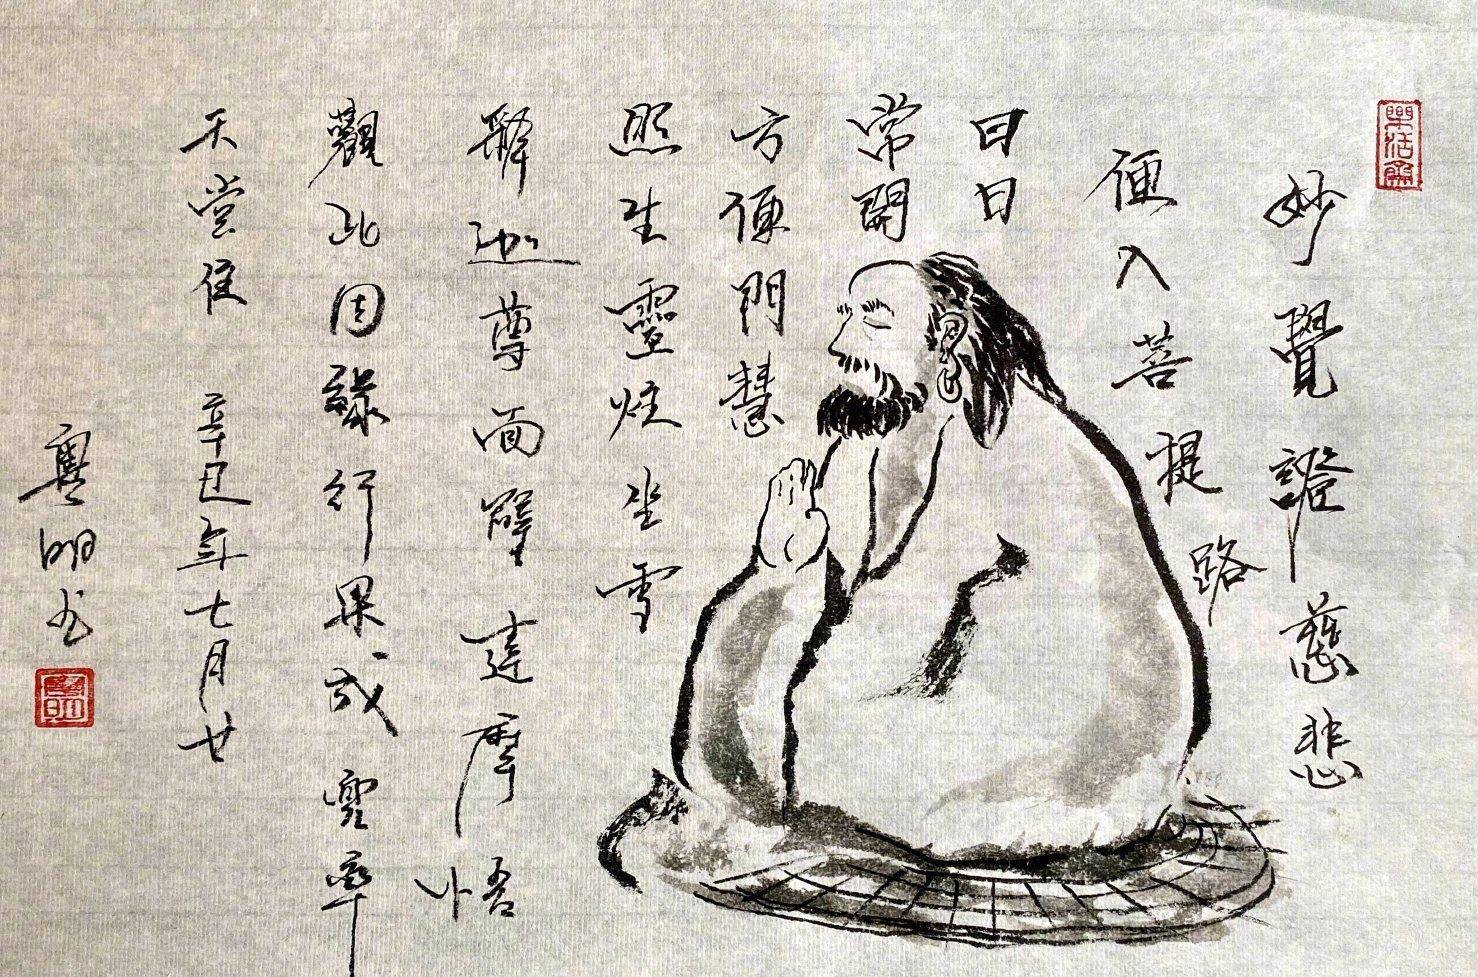 妙覺證慈悲
便入菩提路
日日
常開
方便門慧
照生靈炷坐雪
釋迦尊面壁達摩悟
觀此因緣行果成兜率
天堂住 辛丑年七月廿
明书